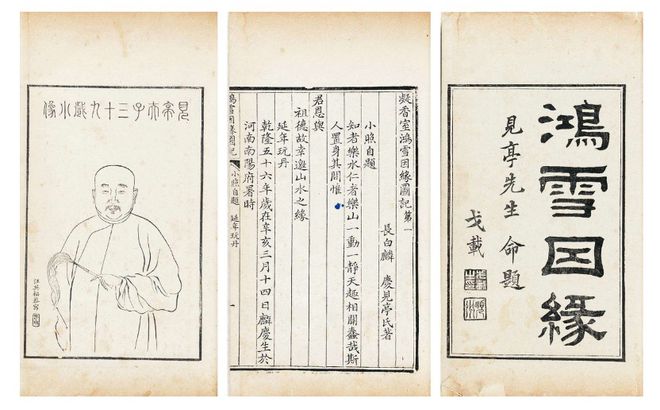 鴻雪因緣
見亭先生 命題
戈載
凝香室鴻雪因緣圖記 第一
長白麟 慶見亭氏著
小照自題
知者樂水仁者樂山一動一靜天趣相關蠢哉斯
人置身其間惟
君恩與
祖德故幸邀山水之緣
延年玩丹
乾隆五十六年歲在辛亥三月十四日麟慶生於
河南南陽府署時
鴻雪因緣圖記 小照自題 延年玩丹
見亭夫子三十九歲小像